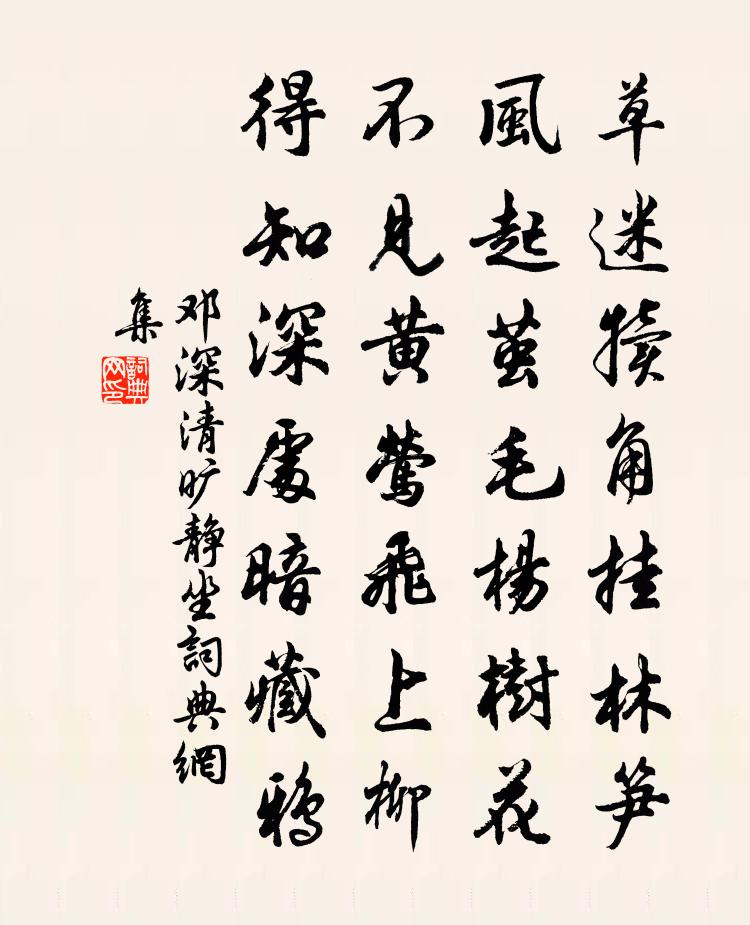 草迷犢角挂林笋
風起茧毛楊樹花
不見黃鶯飛上柳
得知深處暗藏鴉
邓深清旷静坐詞典網
集
詞典
网印